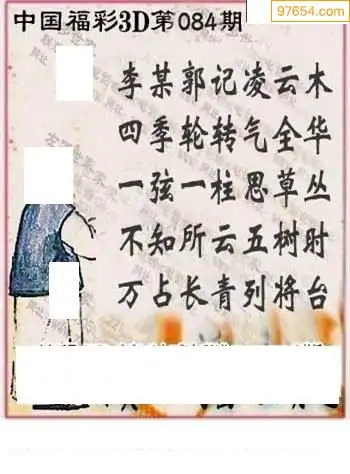 中国福彩3D第084期
97654.com
李某郭记凌云木
四季轮转气全华
一弦一柱思草丛
不知所云五树时
万占长青列将台